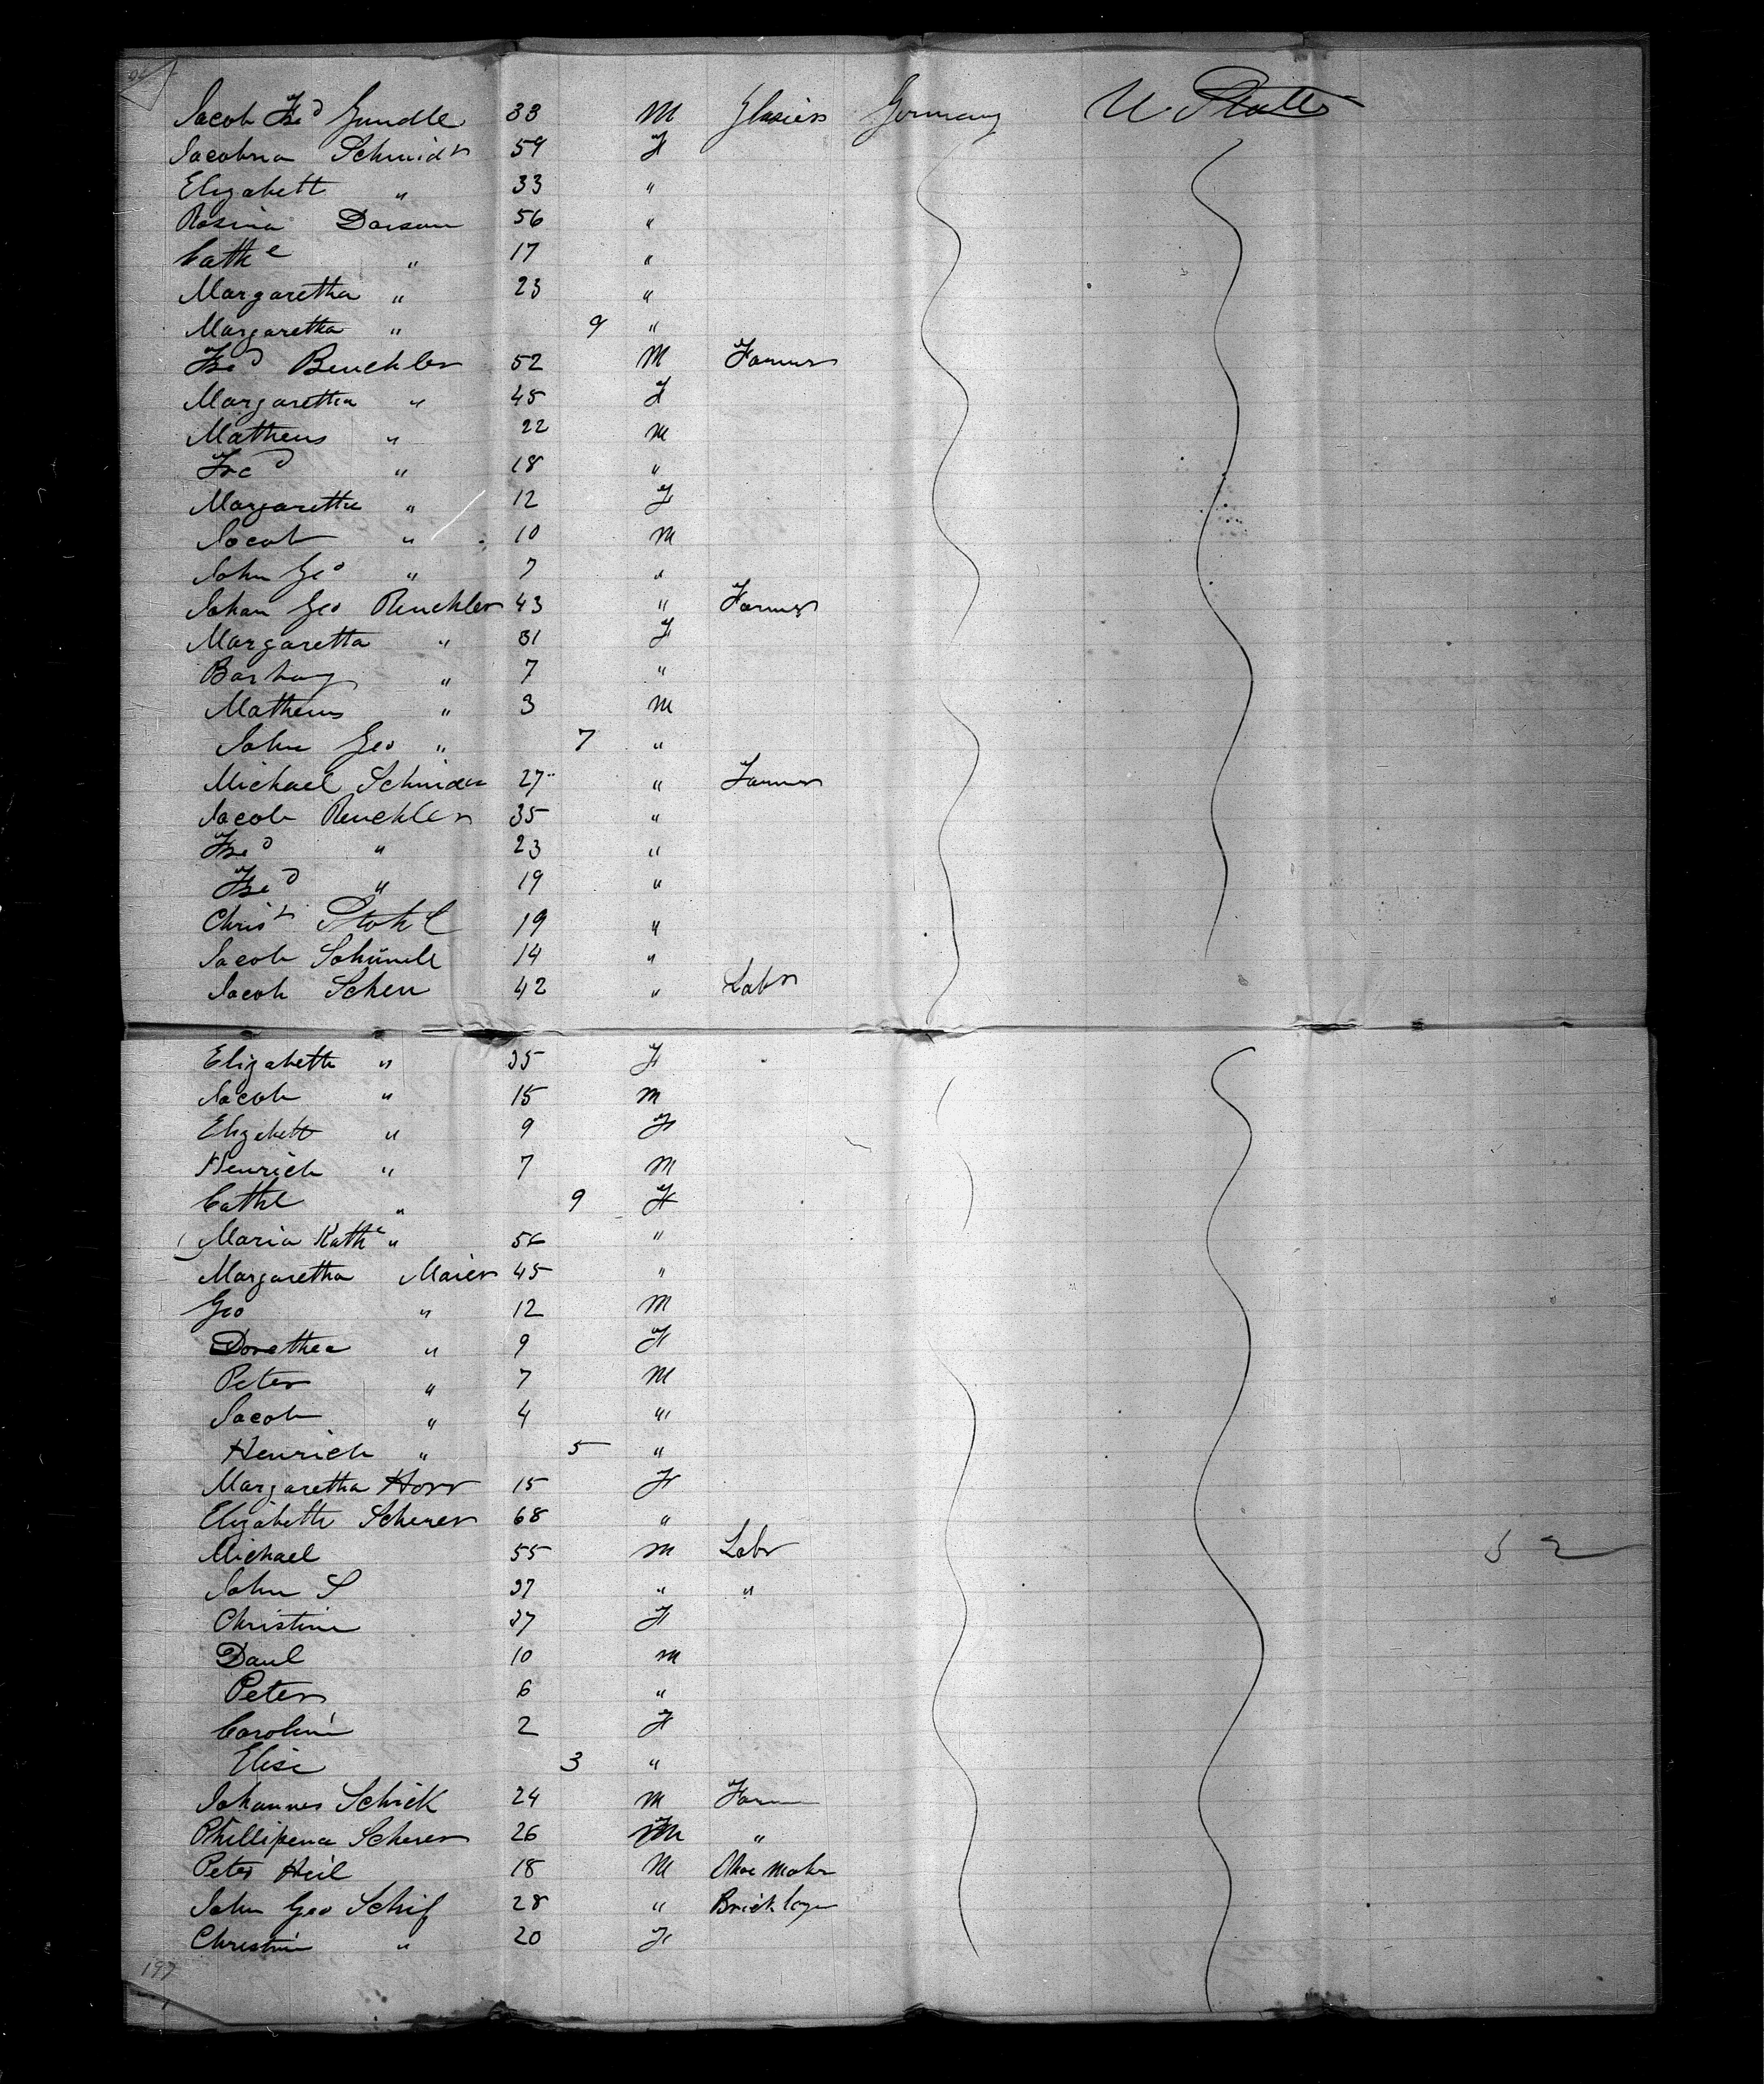 Jacob Fred Gundle 33 M Glasier Germany U States
Jacobina Schmidt 59 F
Elizabeth " 33 "
Rosina Dorsam 56 "
Cathe " 17 "
Margaretha " 23 "
Margaretha " 9 "
Fred Beuchler 52 M Farmer
Margaretha " 45 F
Matheus " 22 M
Fred " 18 "
Margaretha " 12 F
Jacob " 10 M
John Geo " 7 "
Johan Geo Reuchler 43 " Farmer
Margaretta " 31 F
Barbary " 7 "
Matheus " 3 M
John Geo " 7 "
Michael Schnider 27 " Farmer
Jacob Reuchler 35 "
Fred " 23 "
Fred " 19 "
Christ Stohl 19 "
Jacob 14 "
Jacob Scheu 42 " Labr
Elizabeth " 35 F
Jacob " 15 M
Elizabeth " 9 F
Henrich " 7 M
Cathe " 9 F
Maria Kathe " 56 "
Margaretha Maier 45 "
Geo " 12 M
Dorethea " 9 F
Peter " 7 M
Jacob " 4 "
Henrich " 5 "
Margaretha Horr 15 F
Elizabeth Scherer 68 "
Michael 55 M Labr
John S 37 " "
Christine 37 F
Danl 10 M
Peter 6 "
Caroline 2 F
Elise 3 "
Johannes Schick 24 M Farm
Phillipena Scherer 26 "
Peter Heil 18 M Shoe Maker
John Geo Schif 28 " Bricklayer
Christine " 20 F
52
197